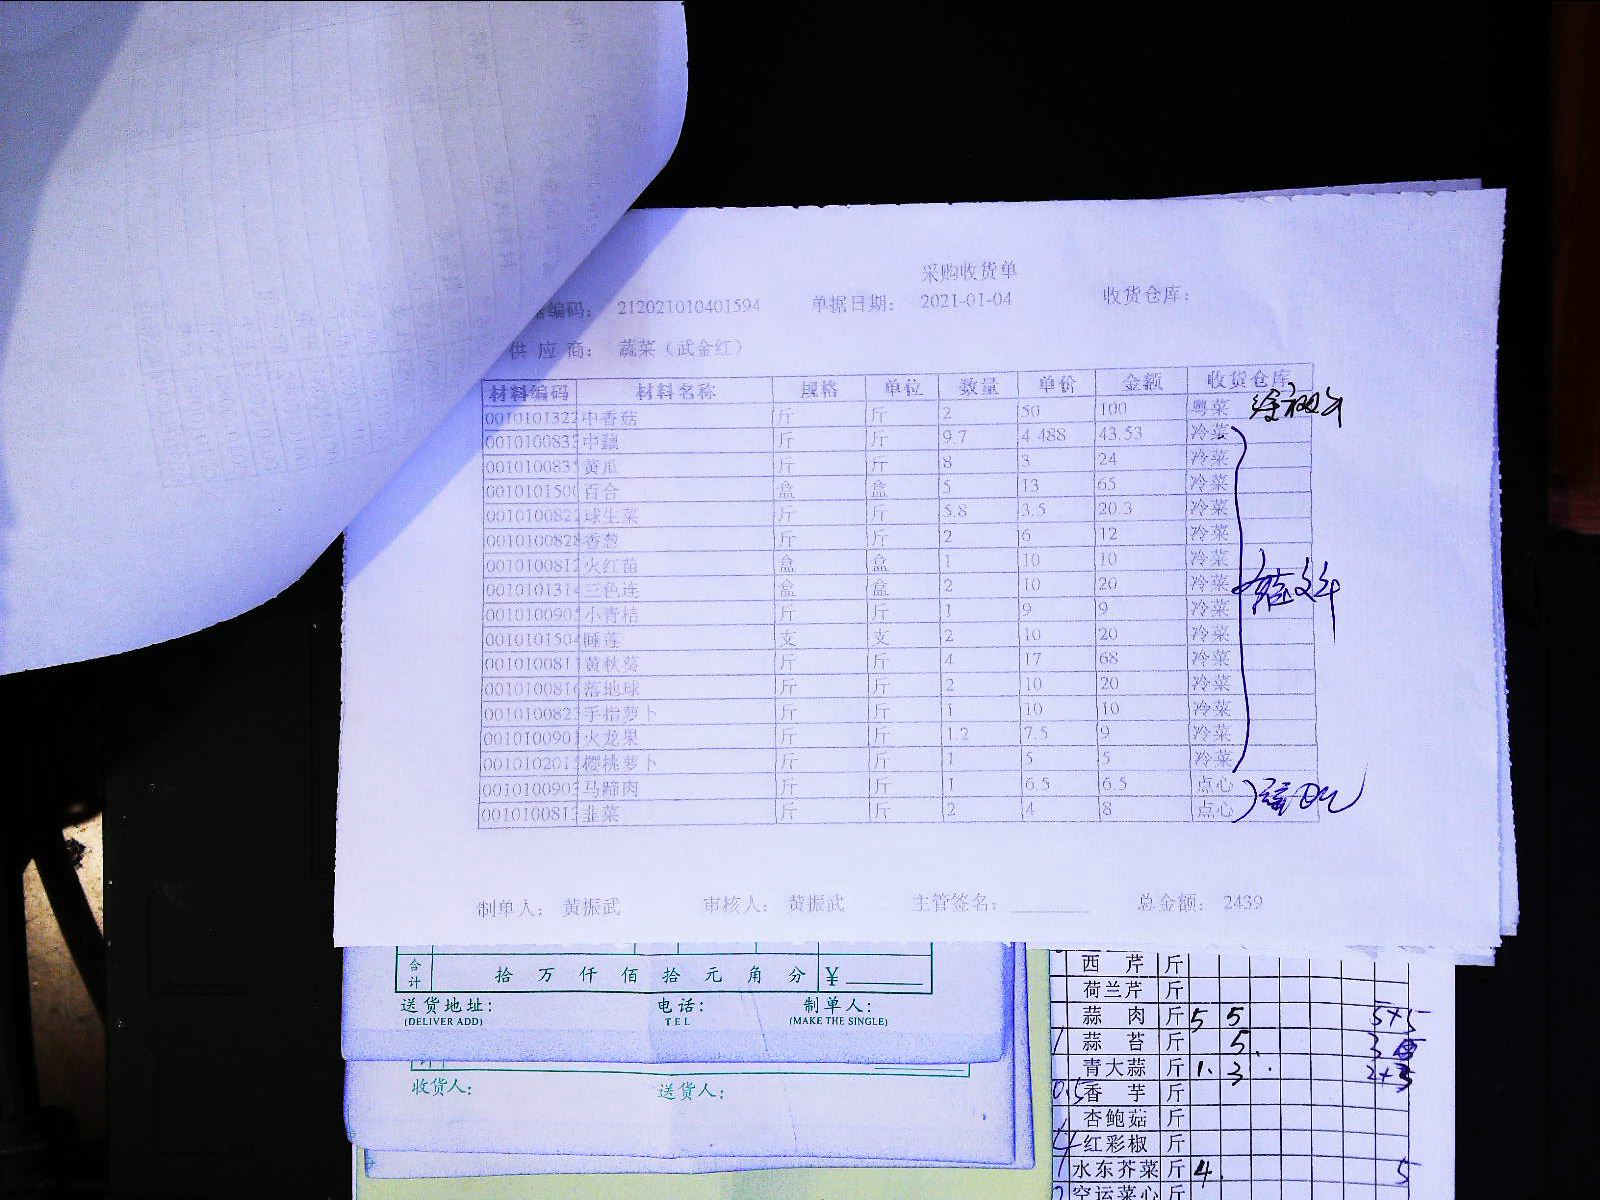 采购收货单
编码： 212021010401594 单据日期： 2021-01-04 收货仓库：
供 应 商： 蔬菜（武金红）
材料编码 材料名称 规格 单位 数量 单价 金额 收货仓库
0010101322 中香菇 斤 斤 2 50 100 粤菜
001010083 中藕 斤 斤 9.7 4.488 43.53 冷菜
001010083 黄瓜 斤 斤 8 3 24 冷菜
001010150 百合 盒 盒 5 13 65 冷菜
001010082 球生菜 斤 斤 5.8 3.5 20.3 冷菜
0010100828 香葱 斤 斤 2 6 12 冷菜
001010081 火红苗 盒 盒 1 10 10 冷菜
001010131 三色连 盒 盒 2 10 20 冷菜
001010090 小青桔 斤 斤 1 9 9 冷菜
0010101504 睡莲 支 支 2 10 20 冷菜
001010081 黄秋葵 斤 斤 4 17 68 冷菜
001010081 落地球 斤 斤 2 10 20 冷菜
001010082 手指萝卜 斤 斤 1 10 10 冷菜
001010090 火龙果 斤 斤 1.2 7.5 9 冷菜
001010201 樱桃萝卜 斤 斤 1 5 5 冷菜
001010090 马蹄肉 斤 斤 1 6.5 6.5 点心
001010081 韭菜 斤 斤 2 4 8 点心
制单人： 黄振武 审核人： 黄振武 主管签名： 总金额： 2439
合计 拾 万 仟 佰 拾 元 角 分 ¥
送货地址： 电话： 制单人：
(DELIVER ADD) TEL (MAKE THE SINGLE)
收货人： 送货人：
西 芹 斤
荷兰芹 斤
蒜 肉 斤 5 5 5+5
蒜 苔 斤 5 3
青大蒜 斤 1. 3
0.5 香 芋 斤
杏鲍菇 斤
4 红彩椒 斤
水东芥菜 斤 4 5
空运菜心 斤